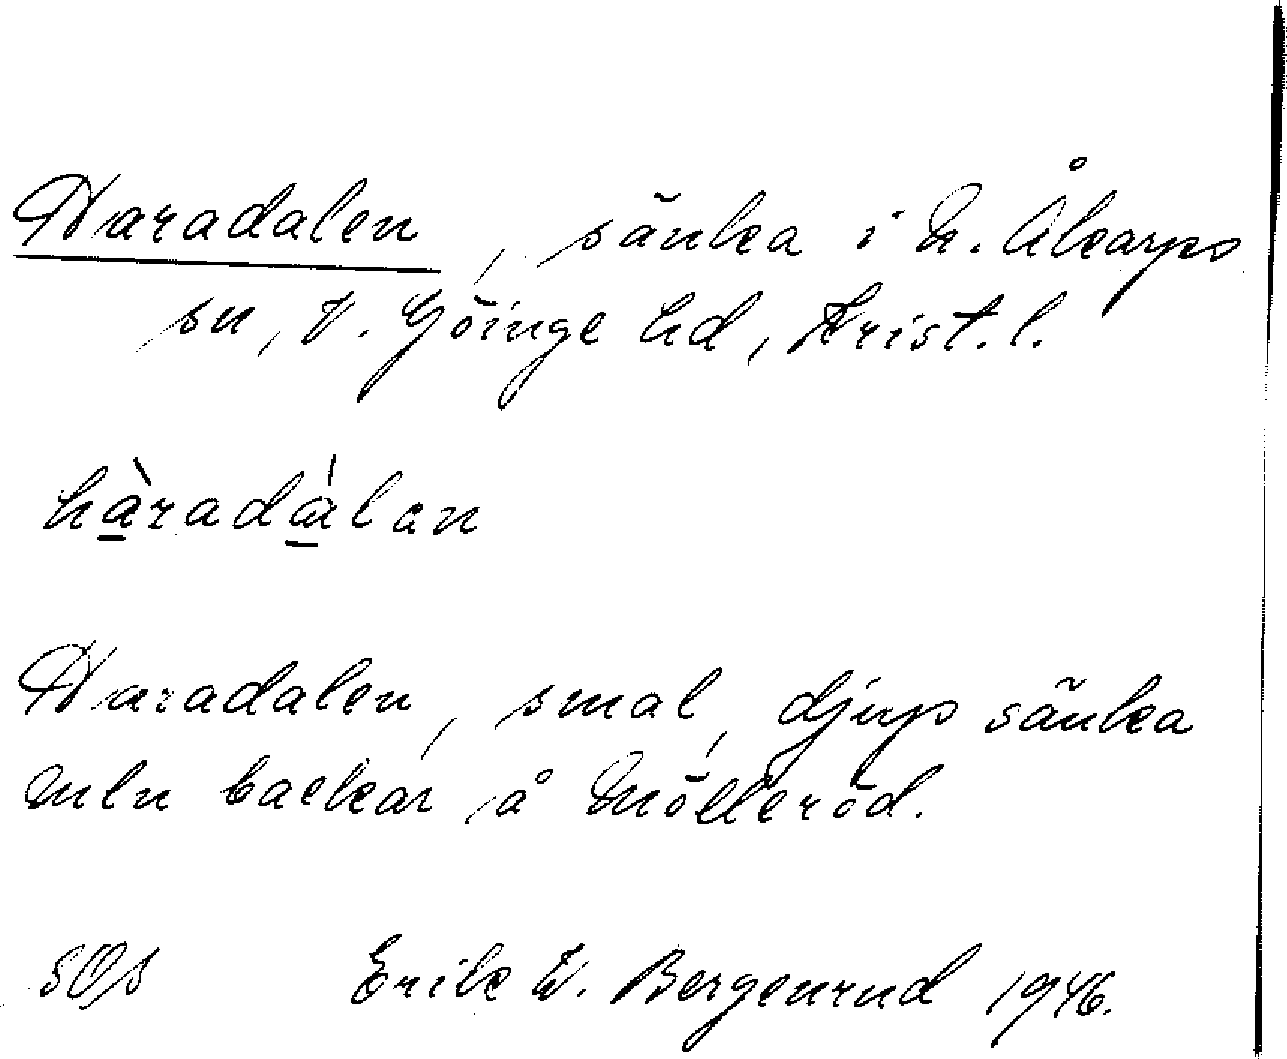 Haradalen, sänka i N. Åkarps
sn, V. Göinge hd, Krist. l.
hàradálan
Haradalen, smal, djup sänka
mln backar å Mölleröd.
SOS Erik W. Bergenrud 1946.